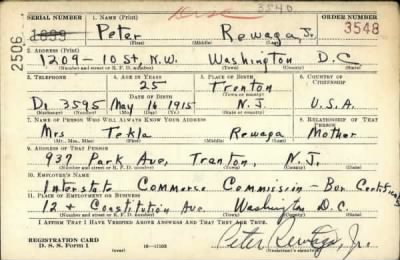 3540
SERIAL NUMBER 1. NAME (Print) ORDER NUMBER
1899 Peter Rewaga, Jr. 3548
2506 (First) (Middle) (Last)
2. ADDRESS (Print)
1209 - 10 St, N.W. Washington D.C
(Number and street or R. F. D. number) (Town) (County) (State)
3. TELEPHONE 4. AGE IN YEARS 5. PLACE OF BIRTH 6. COUNTRY OF CITIZENSHIP
25 Trenton
DATE OF BIRTH (Town or county)
Di 3595 May 16 1915 N.J. U.S.A.
(Exchange) (Number) (Mo.) (Day) (Yr.) (State or country)
7. NAME OF PERSON WHO WILL ALWAYS KNOW YOUR ADDRESS 8. RELATIONSHIP OF THAT PERSON
Mrs Tekla Rewaga Mother
(Mr., Mrs., Miss) (First) (Middle) (Last)
9. ADDRESS OF THAT PERSON
937 Park Ave, Trenton, N.J.
(Number and street or R. F. D. number) (Town) (County) (State)
10. EMPLOYER'S NAME
Interstate Commerce Commission - Bur. Certificates
11. PLACE OF EMPLOYMENT OR BUSINESS
12 + Constitution Ave. Washington D.C.
(Number and street or R. F. D. number) (Town) (County) (State)
I AFFIRM THAT I HAVE VERIFIED ABOVE ANSWERS AND THAT THEY ARE TRUE.
REGISTRATION CARD
D. S. S. Form 1 (over) 16-17105 Peter Rewaga, Jr.
(Registrant's signature)